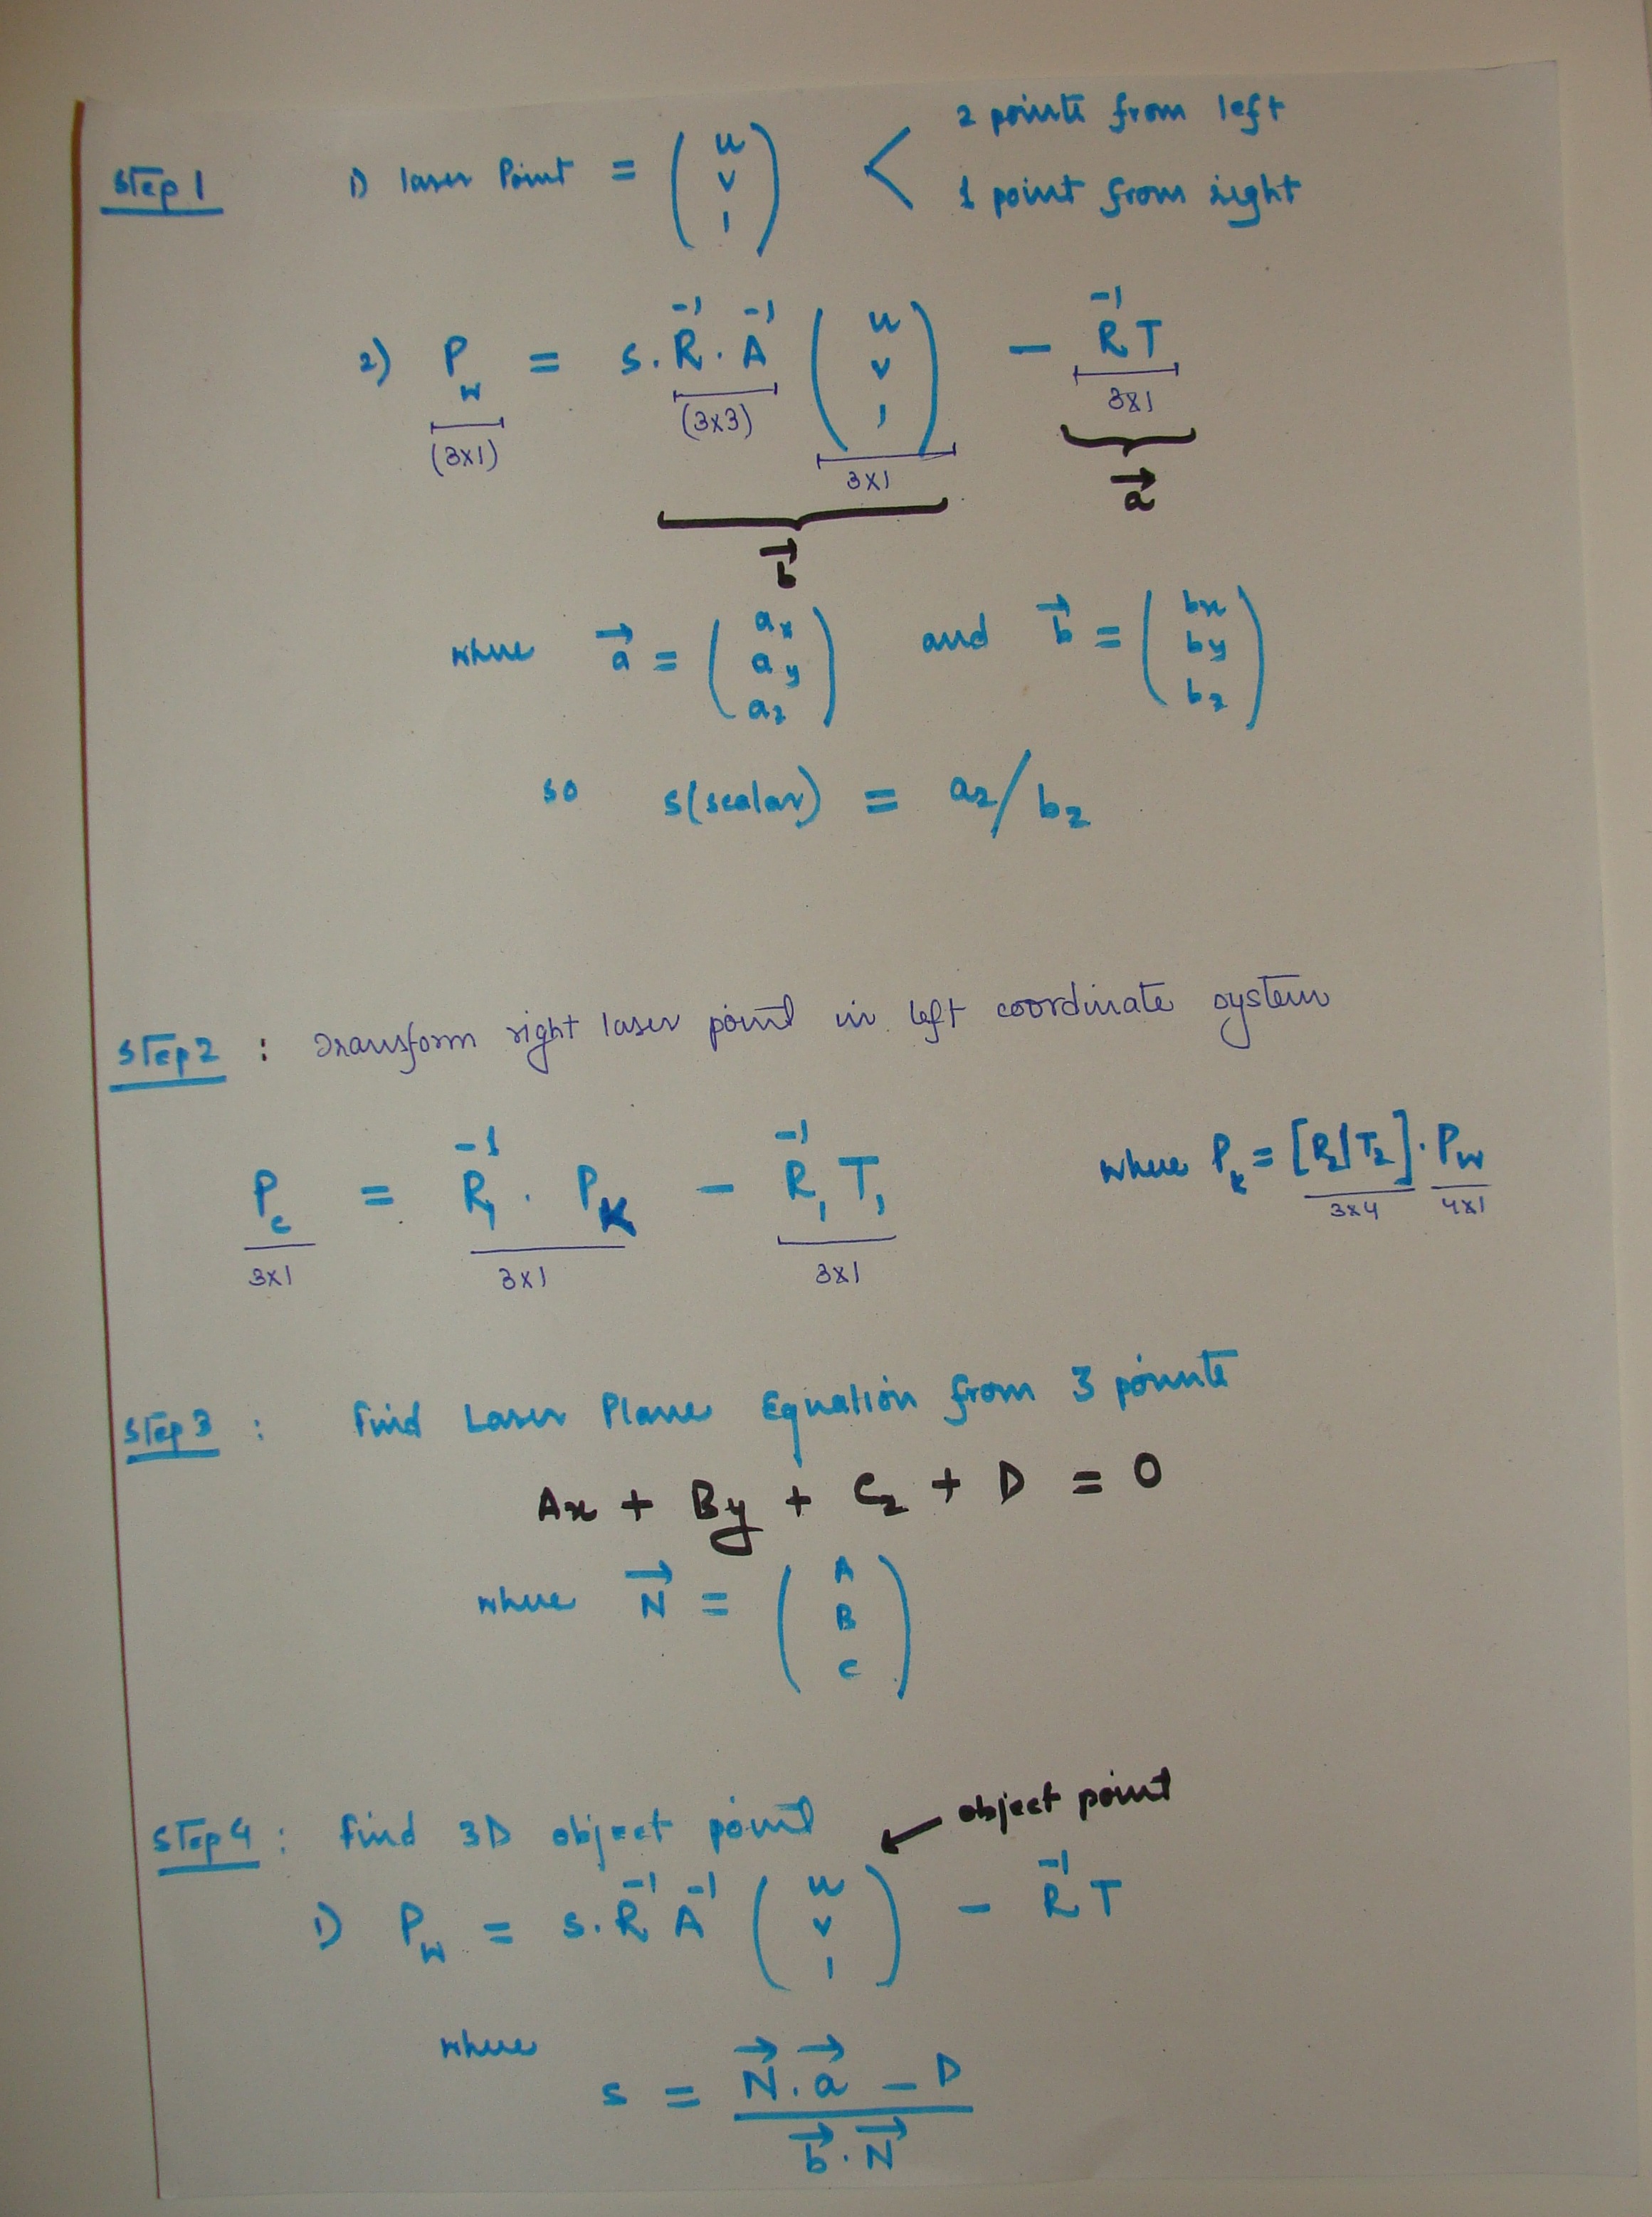 Step 1 1) laser Point = (u v 1) < 2 points from left
1 point from right
2) P_w = s. R^-1 . A^-1 (u v 1) - R^-1 T
(3x1) (3x3) 3x1 3x1
b→ a→
where a→ = (ax ay az) and b→ = (bx by bz)
so s(scalar) = az / bz
Step 2 : Transform right laser point in left coordinate system
P_c = R_1^-1 . P_K - R_1^-1 T_1 where P_k = [R_2|T_2] . P_w
3x1 3x1 3x1 3x4 4x1
Step 3 : Find Laser Plane Equation from 3 points
Ax + By + Cz + D = 0
where N→ = (A B C)
Step 4 : Find 3D object point
object point
1) P_w = s. R^-1 A^-1 (u v 1) - R^-1 T
where
s = N→ . a→ - D
b→ . N→